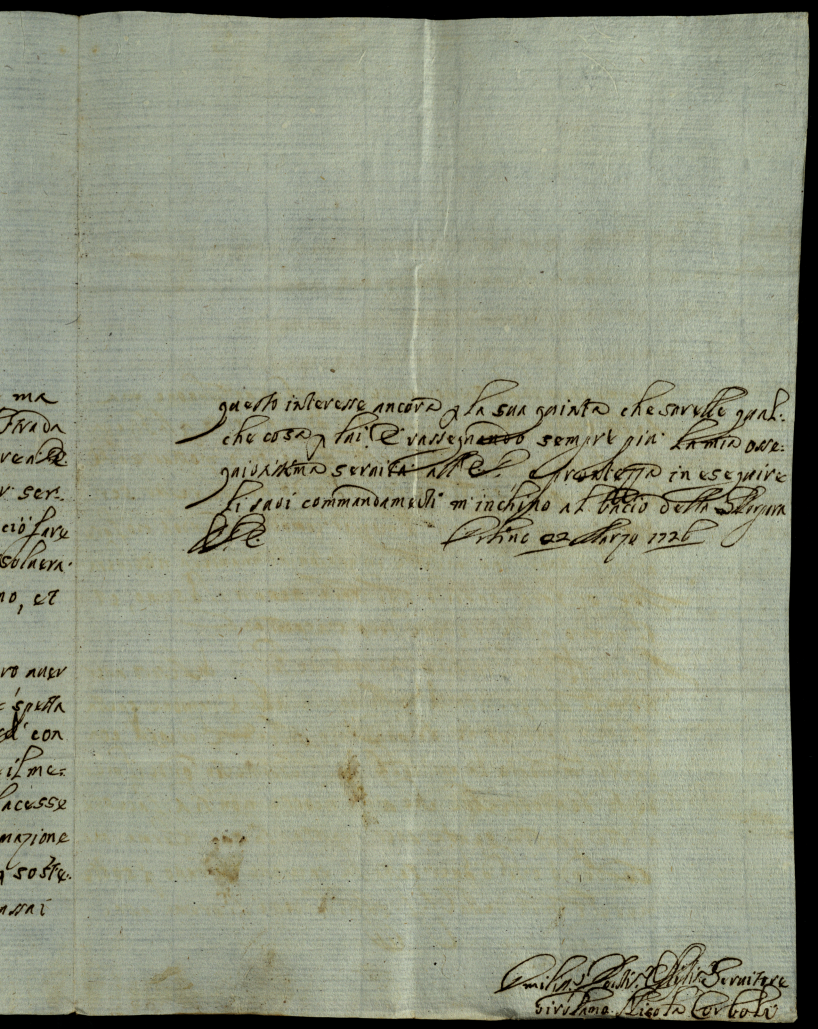 ma
strada
r ser:
ciò fare
solvera
no, et
ro aver
è spetta
con
il me:
facesse
mazione
soste:
assai
questo interesse ancora p la sua quinta che sarebbe qual:
che cosa p lui. E rassegnando sempre più la mia osse:
quiosissima servitù all' prontezza in eseguire
li suoi commandamenti m'inchino al bacio della Porpora
Urbino 22 Marzo 1726
Servitore
Girolamo Nicola Corboli